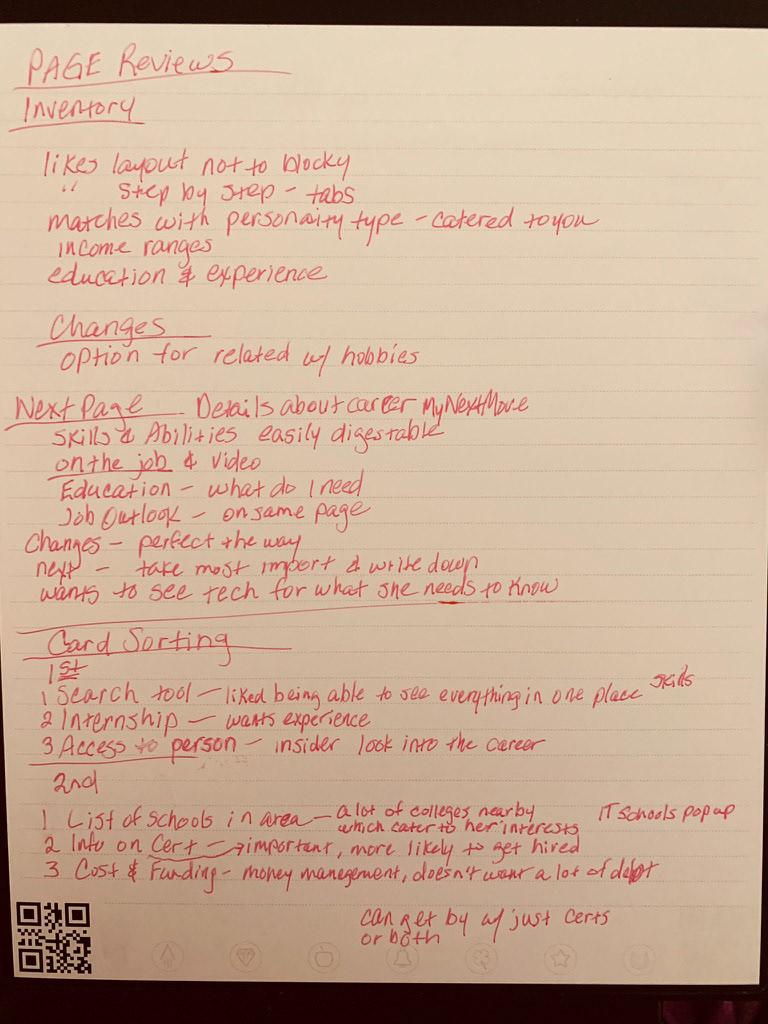 PAGE Reviews
Inventory
likes layout not to blocky
" step by step - tabs
matches with personaity type - catered to you
income ranges
education & experience
Changes
option for related w/ hobbies
Next Page Details about career MyNextMove
Skills & Abilities easily digestable
on the job & video
Education - what do I need
Job Outlook - on same page
Changes - perfect the way
next - take most import & write down
wants to see tech for what she needs to know
Card Sorting
1st
1 Search tool - liked being able to see everything in one place skills
2 Internship - wants experience
3 Access to person - insider look into the career
2nd
1 List of schools in area - a lot of colleges nearby IT Schools pop up
which cater to her interests
2 Info on Cert -> important, more likely to get hired
3 Cost & Funding - money management, doesn't want a lot of debt
can get by w/ just certs
or both